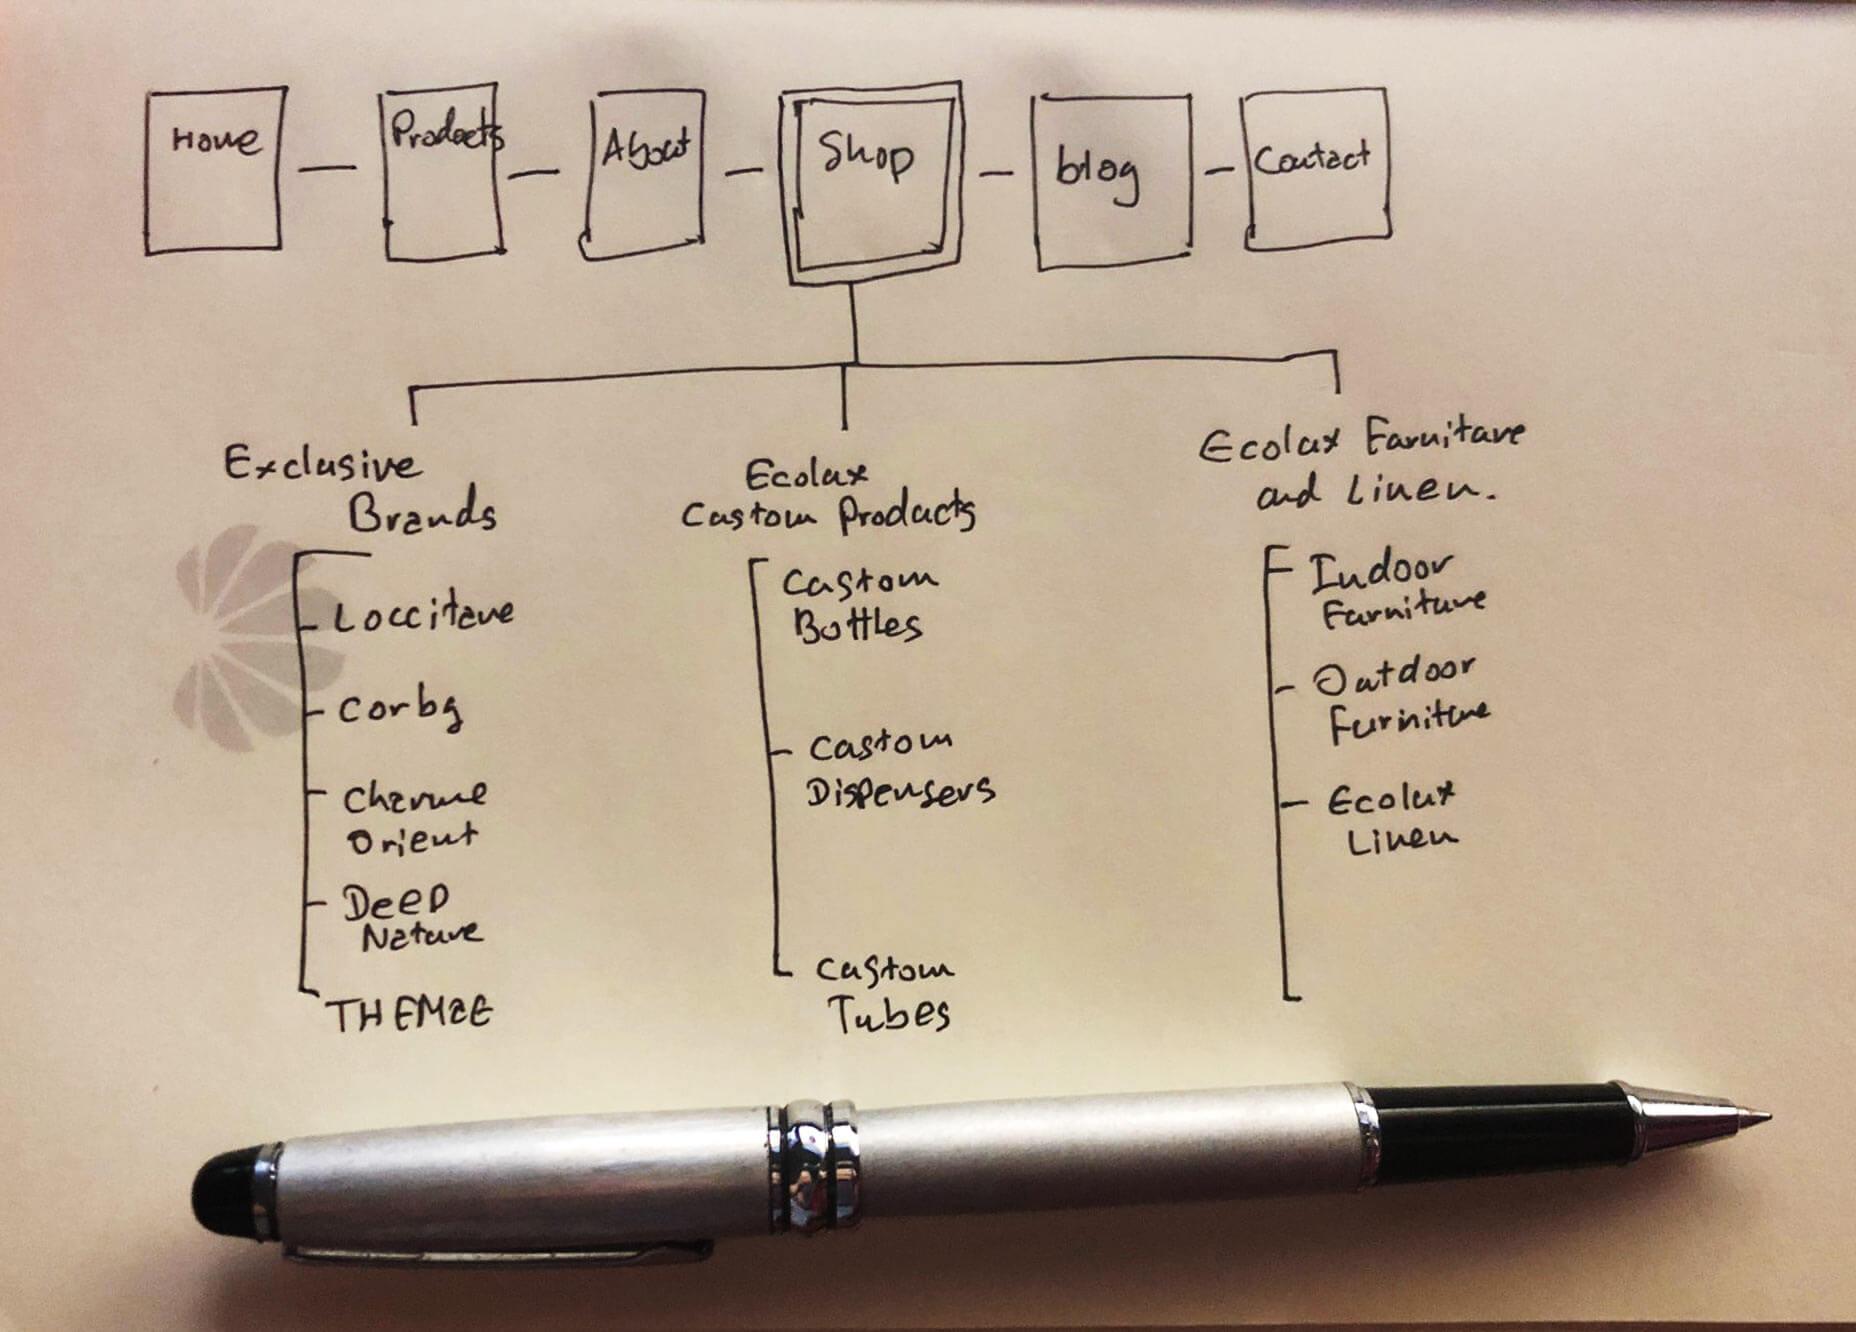 Home
Products
About
Shop
blog
Contact
Exclusive
Brands
Loccitane
Corbg
Charme
Orient
Deep
Nature
THEMAE
Ecolux
Custom Products
Custom
Bottles
Custom
Dispensers
Custom
Tubes
Ecolux Furniture
and Linen.
Indoor
Furniture
Outdoor
Furniture
Ecolux
Linen